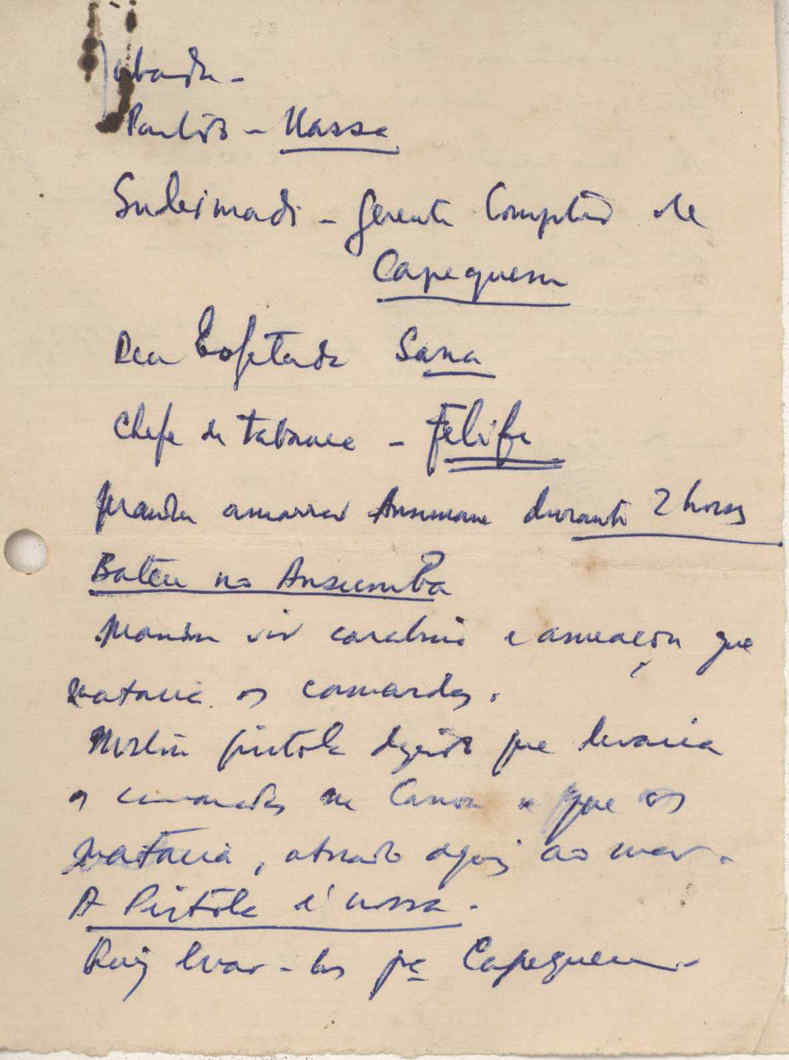 Jubanda -
Paulito - Nassa
Suleimadi - gerente Comptoir de
Capequem
Deu bofetada Sana
Chefe de tabanca - Felife
Mandou amarrar Ansumane durante 2 horas
Bateu no Ansumba
Mandou vir carabina e ameaçou que
mataria os camaradas.
Mostrou pistola dizendo que levaria
os camaradas na Canoa e que os
mataria, atirando depois ao mar.
A Pistola é nossa.
Quiz levar-los pa Capequem -